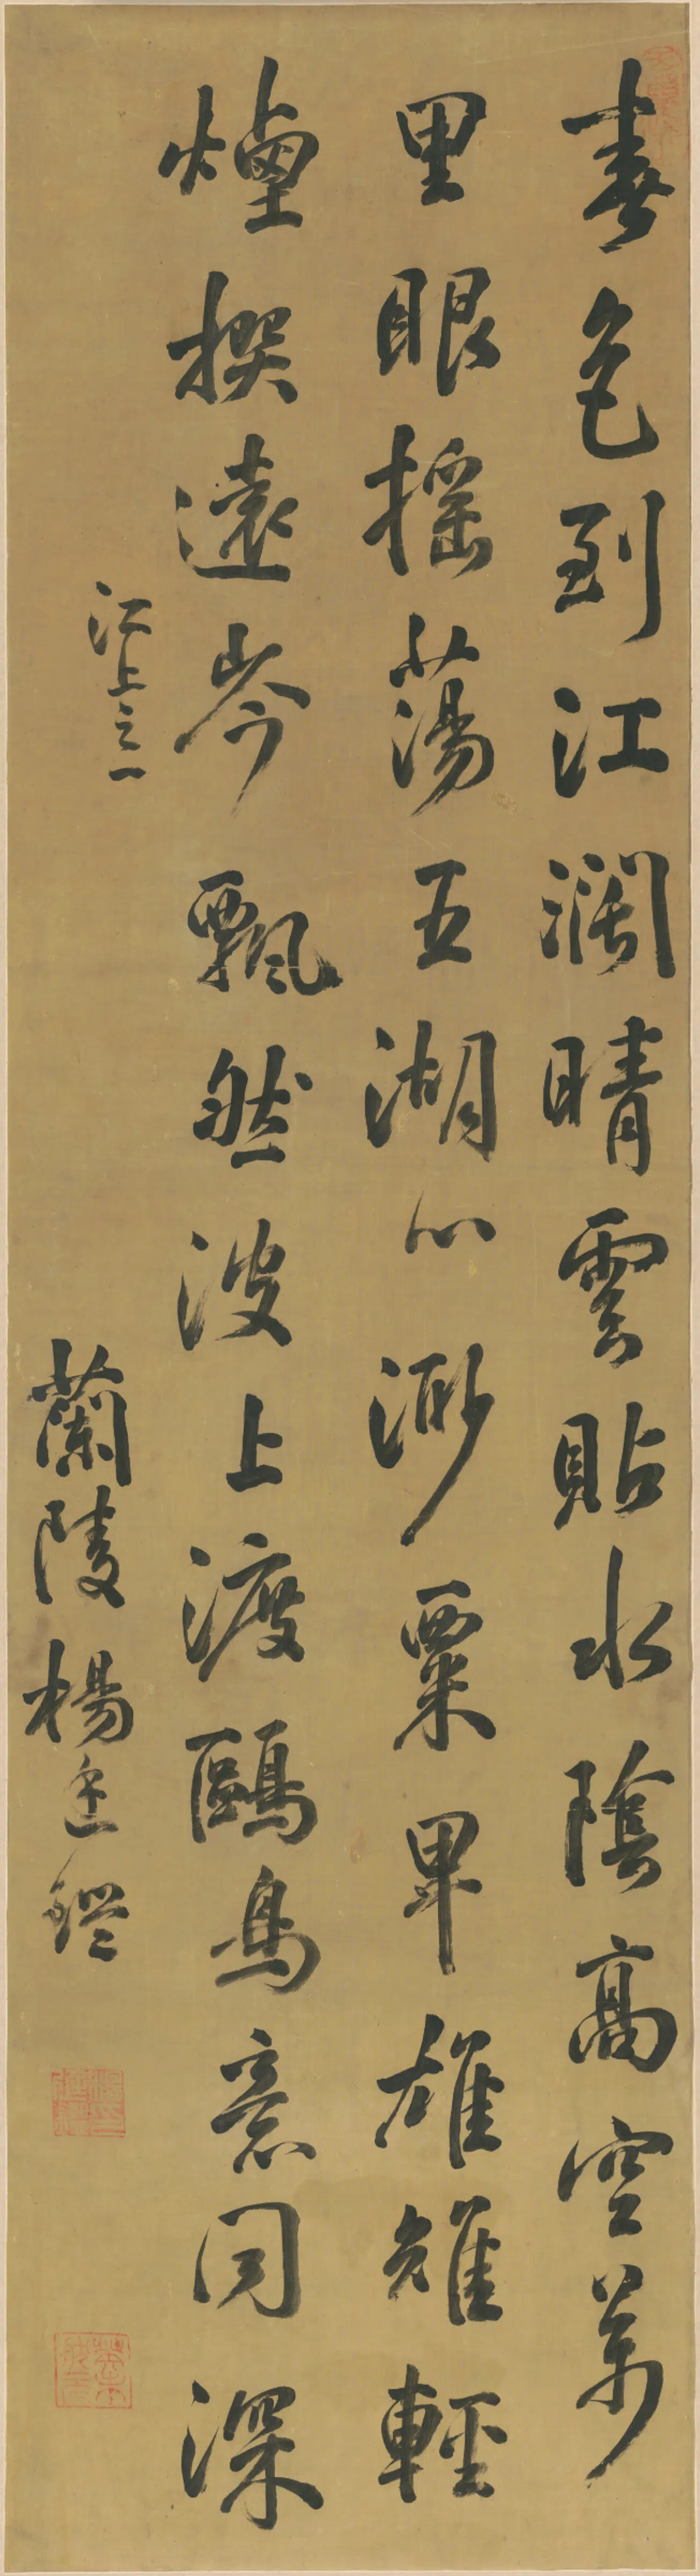 春色到江濶晴雲貼水陰高空萬
里眼搖蕩五湖心渺粟卑雄雉輕
煙撰遠岑飄然波上渡鷗鳥意同深
江上之一
蘭陵楊廷鑑